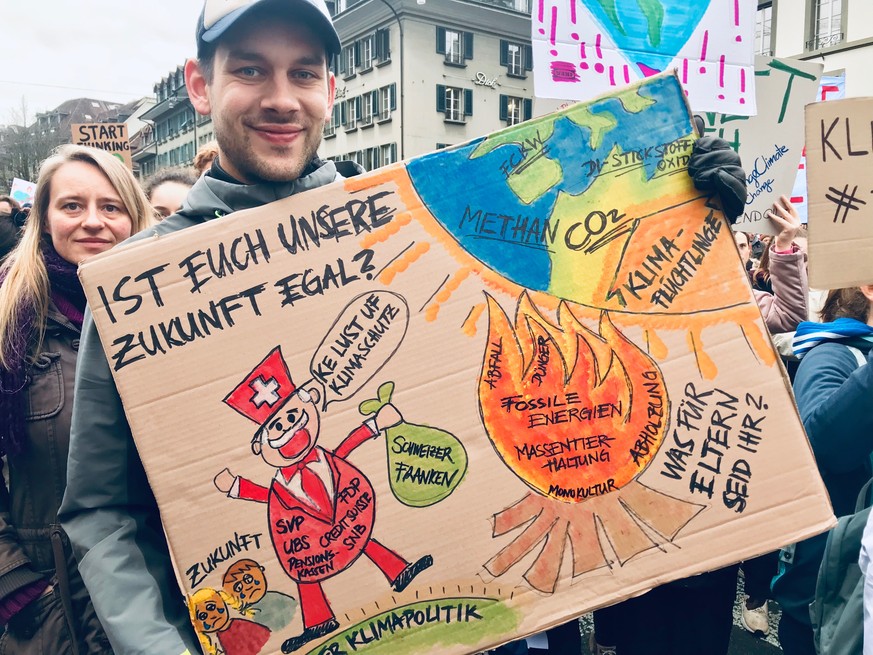 START
THINKING
IST EUCH UNSERE
ZUKUNFT EGAL?
KE LUST UF
KLIMASCHUTZ
SCHWEIZER
FRANKEN
SVP
UBS
PENSIONS-
KASSEN
FDP
CREDIT SUISSE
SNB
ZUKUNFT
KLIMAPOLITIK
FCKW
DI-STICKSTOFF
OXID
METHAN
CO2
KLIMA-
FLÜCHTLINGE
ABFALL
DÜNGER
FOSSILE
ENERGIEN
MASSENTIER-
HALTUNG
MONOKULTUR
ABHOLZUNG
WAS FÜR
ELTERN
SEID IHR?
Climate
change
KL
#